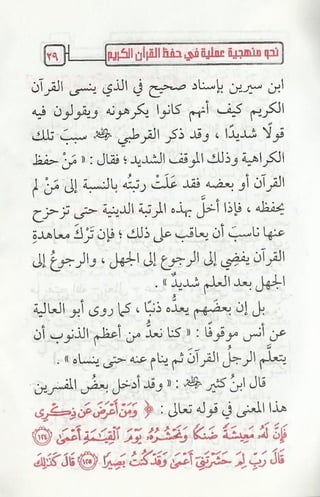 نحو منهجية عملية في حفظ القرآن الكريم
٢٩
ابن سيرين بإسناد صحيح في الذي ينسى القرآن
الكريم كيف أنهم كانوا يكرهونه ويقولون فيه
قولًا شديدًا ، وقد ذكر القرطبي سبب تلك
الكراهية وذلك الموقف الشديد ؛ فقال : « مَنْ حفظ
القرآن أو بعضه فقد عَلَتْ رتبتُه بالنسبة إلى مَنْ لم
يحفظه ، فإذا أخلَّ بهذه المرتبة الدينية حتى تزحزح
عنها ناسبَ أن يعاقب على ذلك ؛ فإن تَرْكَ معاهدةِ
القرآن يفضِي إلى الرجوع إلى الجهل ، والرجوعُ إلى
الجهل بعد العلم شديدٌ » .
بل إن بعضَهم يعدُّه ذنبًا ، كما روى أبو العالية
عن أنس موقوفًا : « كنا نعدُّ من أعظم الذنوب أن
يتعلَّم الرجلُ القرآنَ ثم ينام عنه حتى ينساه » .
قال ابنُ كثير : « وقد أدخل بعضُ المفسرين
هذا المعنى في قوله تعالى : ﴿ وَمَنْ أَعْرَضَ عَن ذِكْرِى
فَإِنَّ لَهُۥ مَعِيشَةً ضَنكًا وَنَحْشُرُهُۥ يَوْمَ ٱلْقِيَـٰمَةِ أَعْمَىٰ ﴿١٢٤﴾
قَالَ رَبِّ لِمَ حَشَرْتَنِىٓ أَعْمَىٰ وَقَدْ كُنتُ بَصِيرًا ﴿١٢٥﴾ قَالَ كَذَٰلِكَ